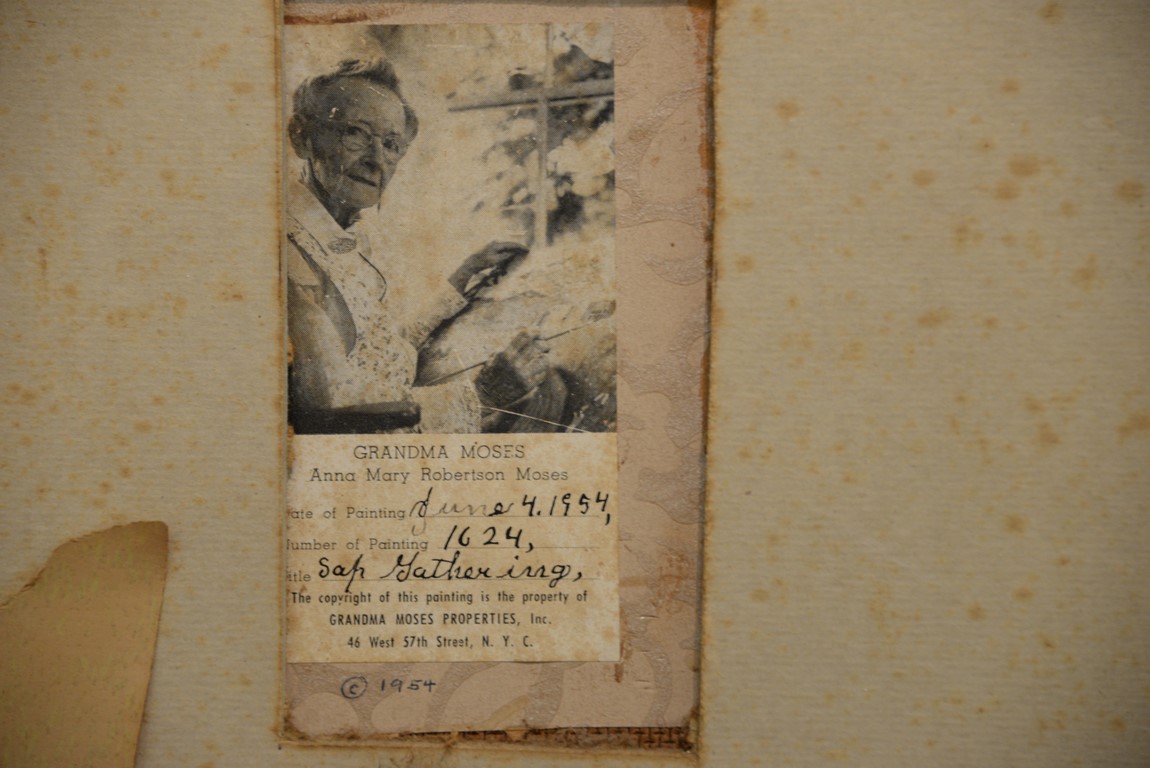 GRANDMA MOSES
Anna Mary Robertson Moses
ate of Painting June 4. 1954,
umber of Painting 1624,
itle Sap Gathering,
The copyright of this painting is the property of
GRANDMA MOSES PROPERTIES, Inc.
46 West 57th Street, N. Y. C.
© 1954